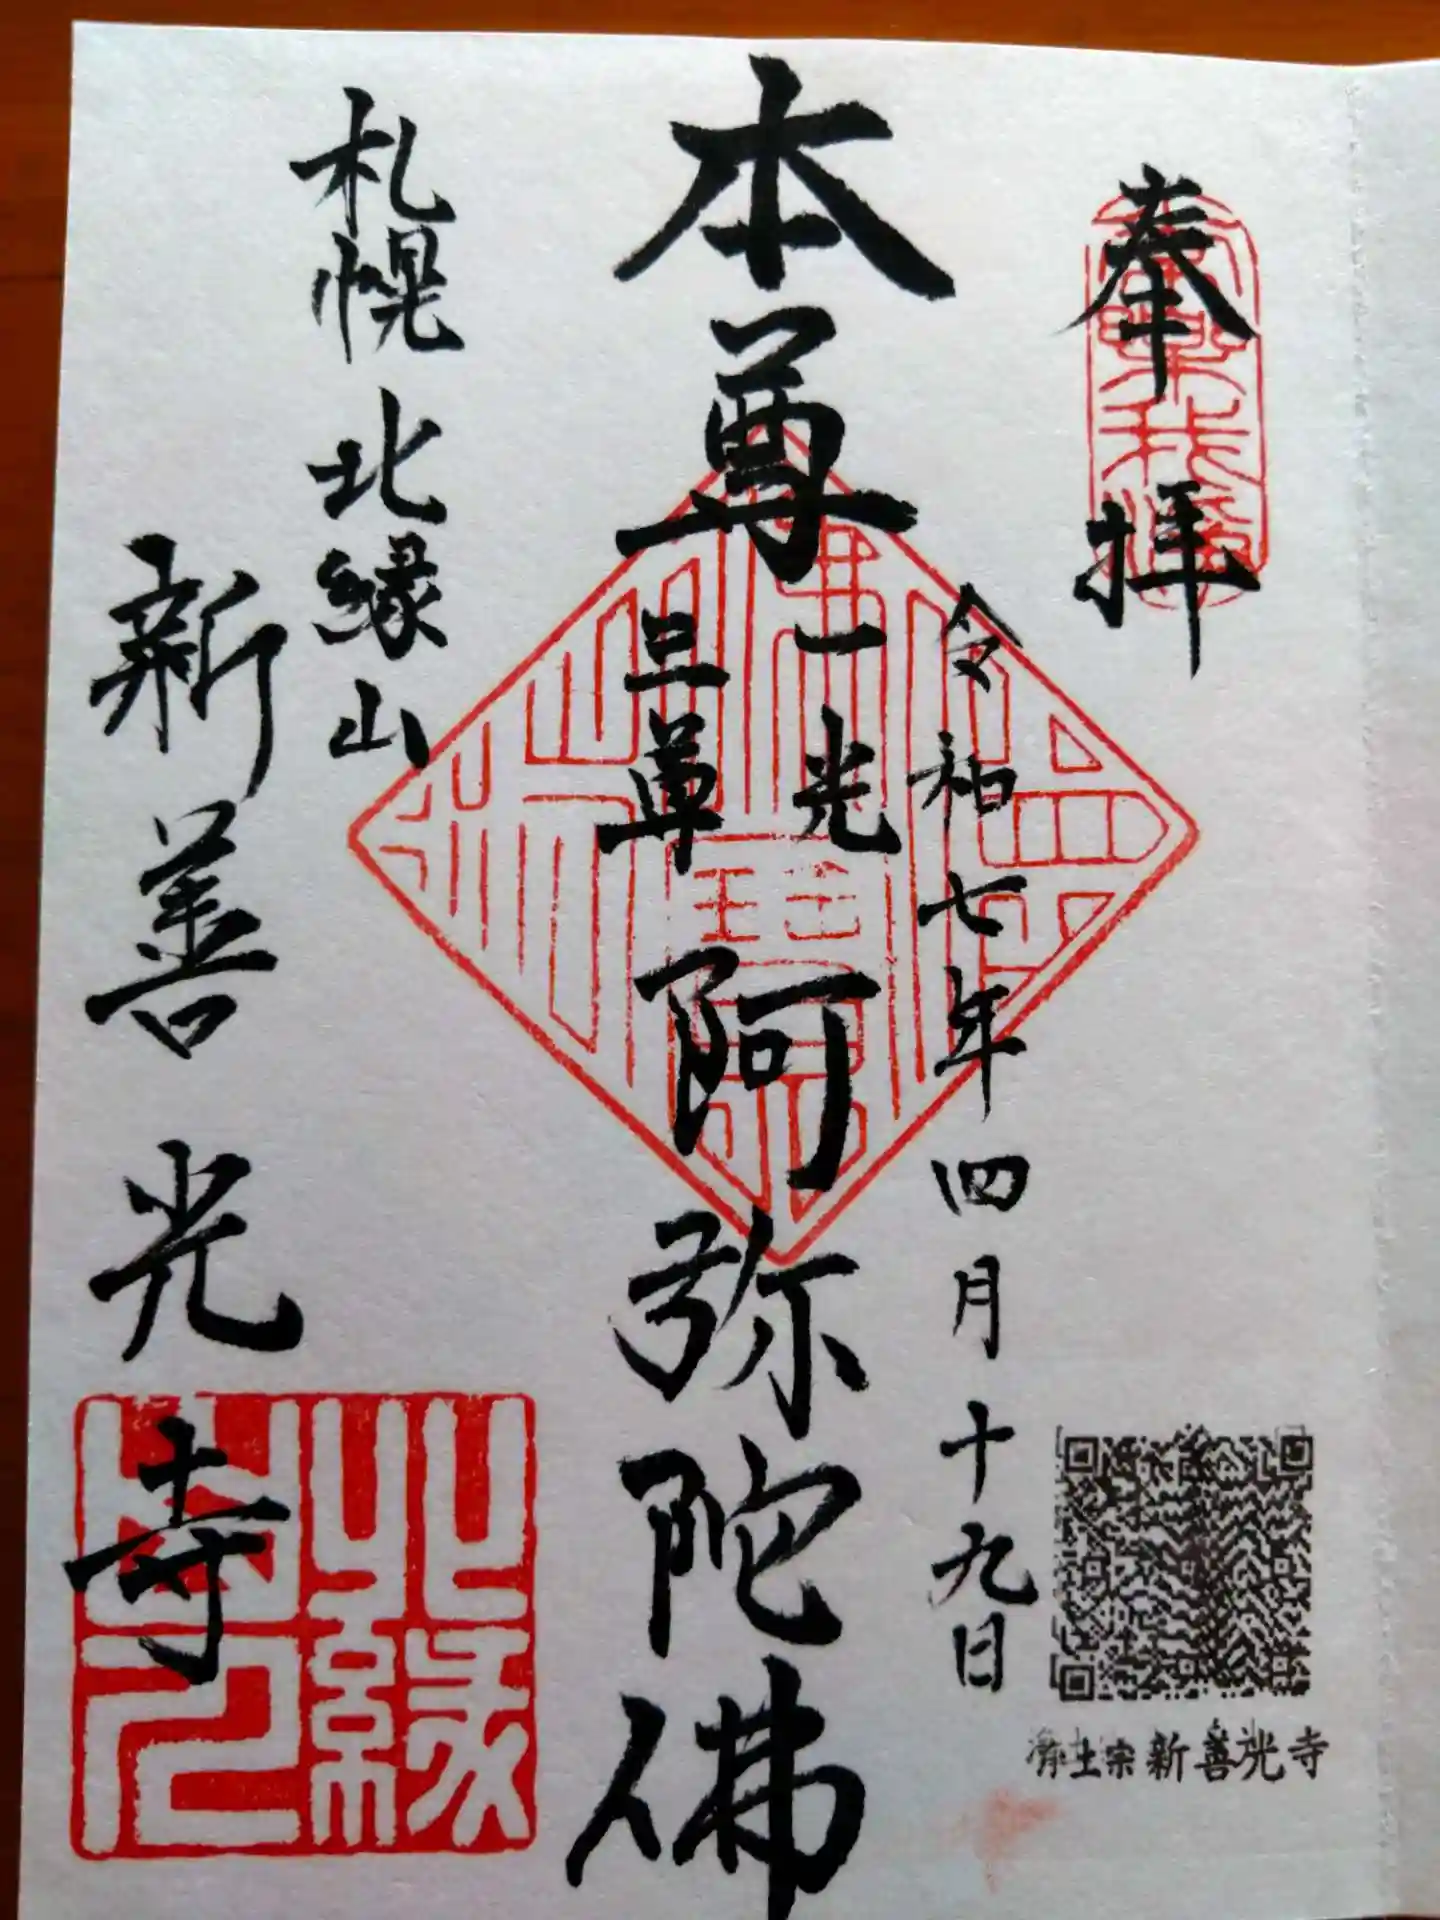 奉拝
令和七年四月十九日
本尊
一光
三尊
阿弥陀佛
札幌 北縁山
新善光寺
北縁
山之
浄土宗 新善光寺